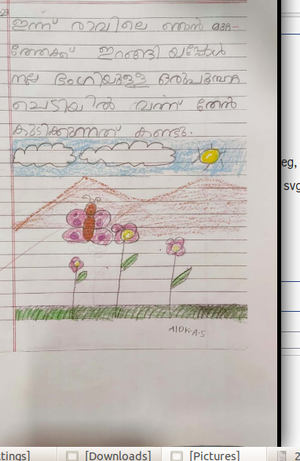 ഇന്ന് രാവിലെ ഞാൻ
ഇറങ്ങി യപ്പോൾ
നല്ല ഭംഗിയുള്ള ഒരുപൂമ്പാറ്റ
ചെടിയിൽ വന്ന് തേൻ
കുടിക്കുന്നത് കണ്ടു.
eg,
svg
[Downloads]
[Pictures]
2